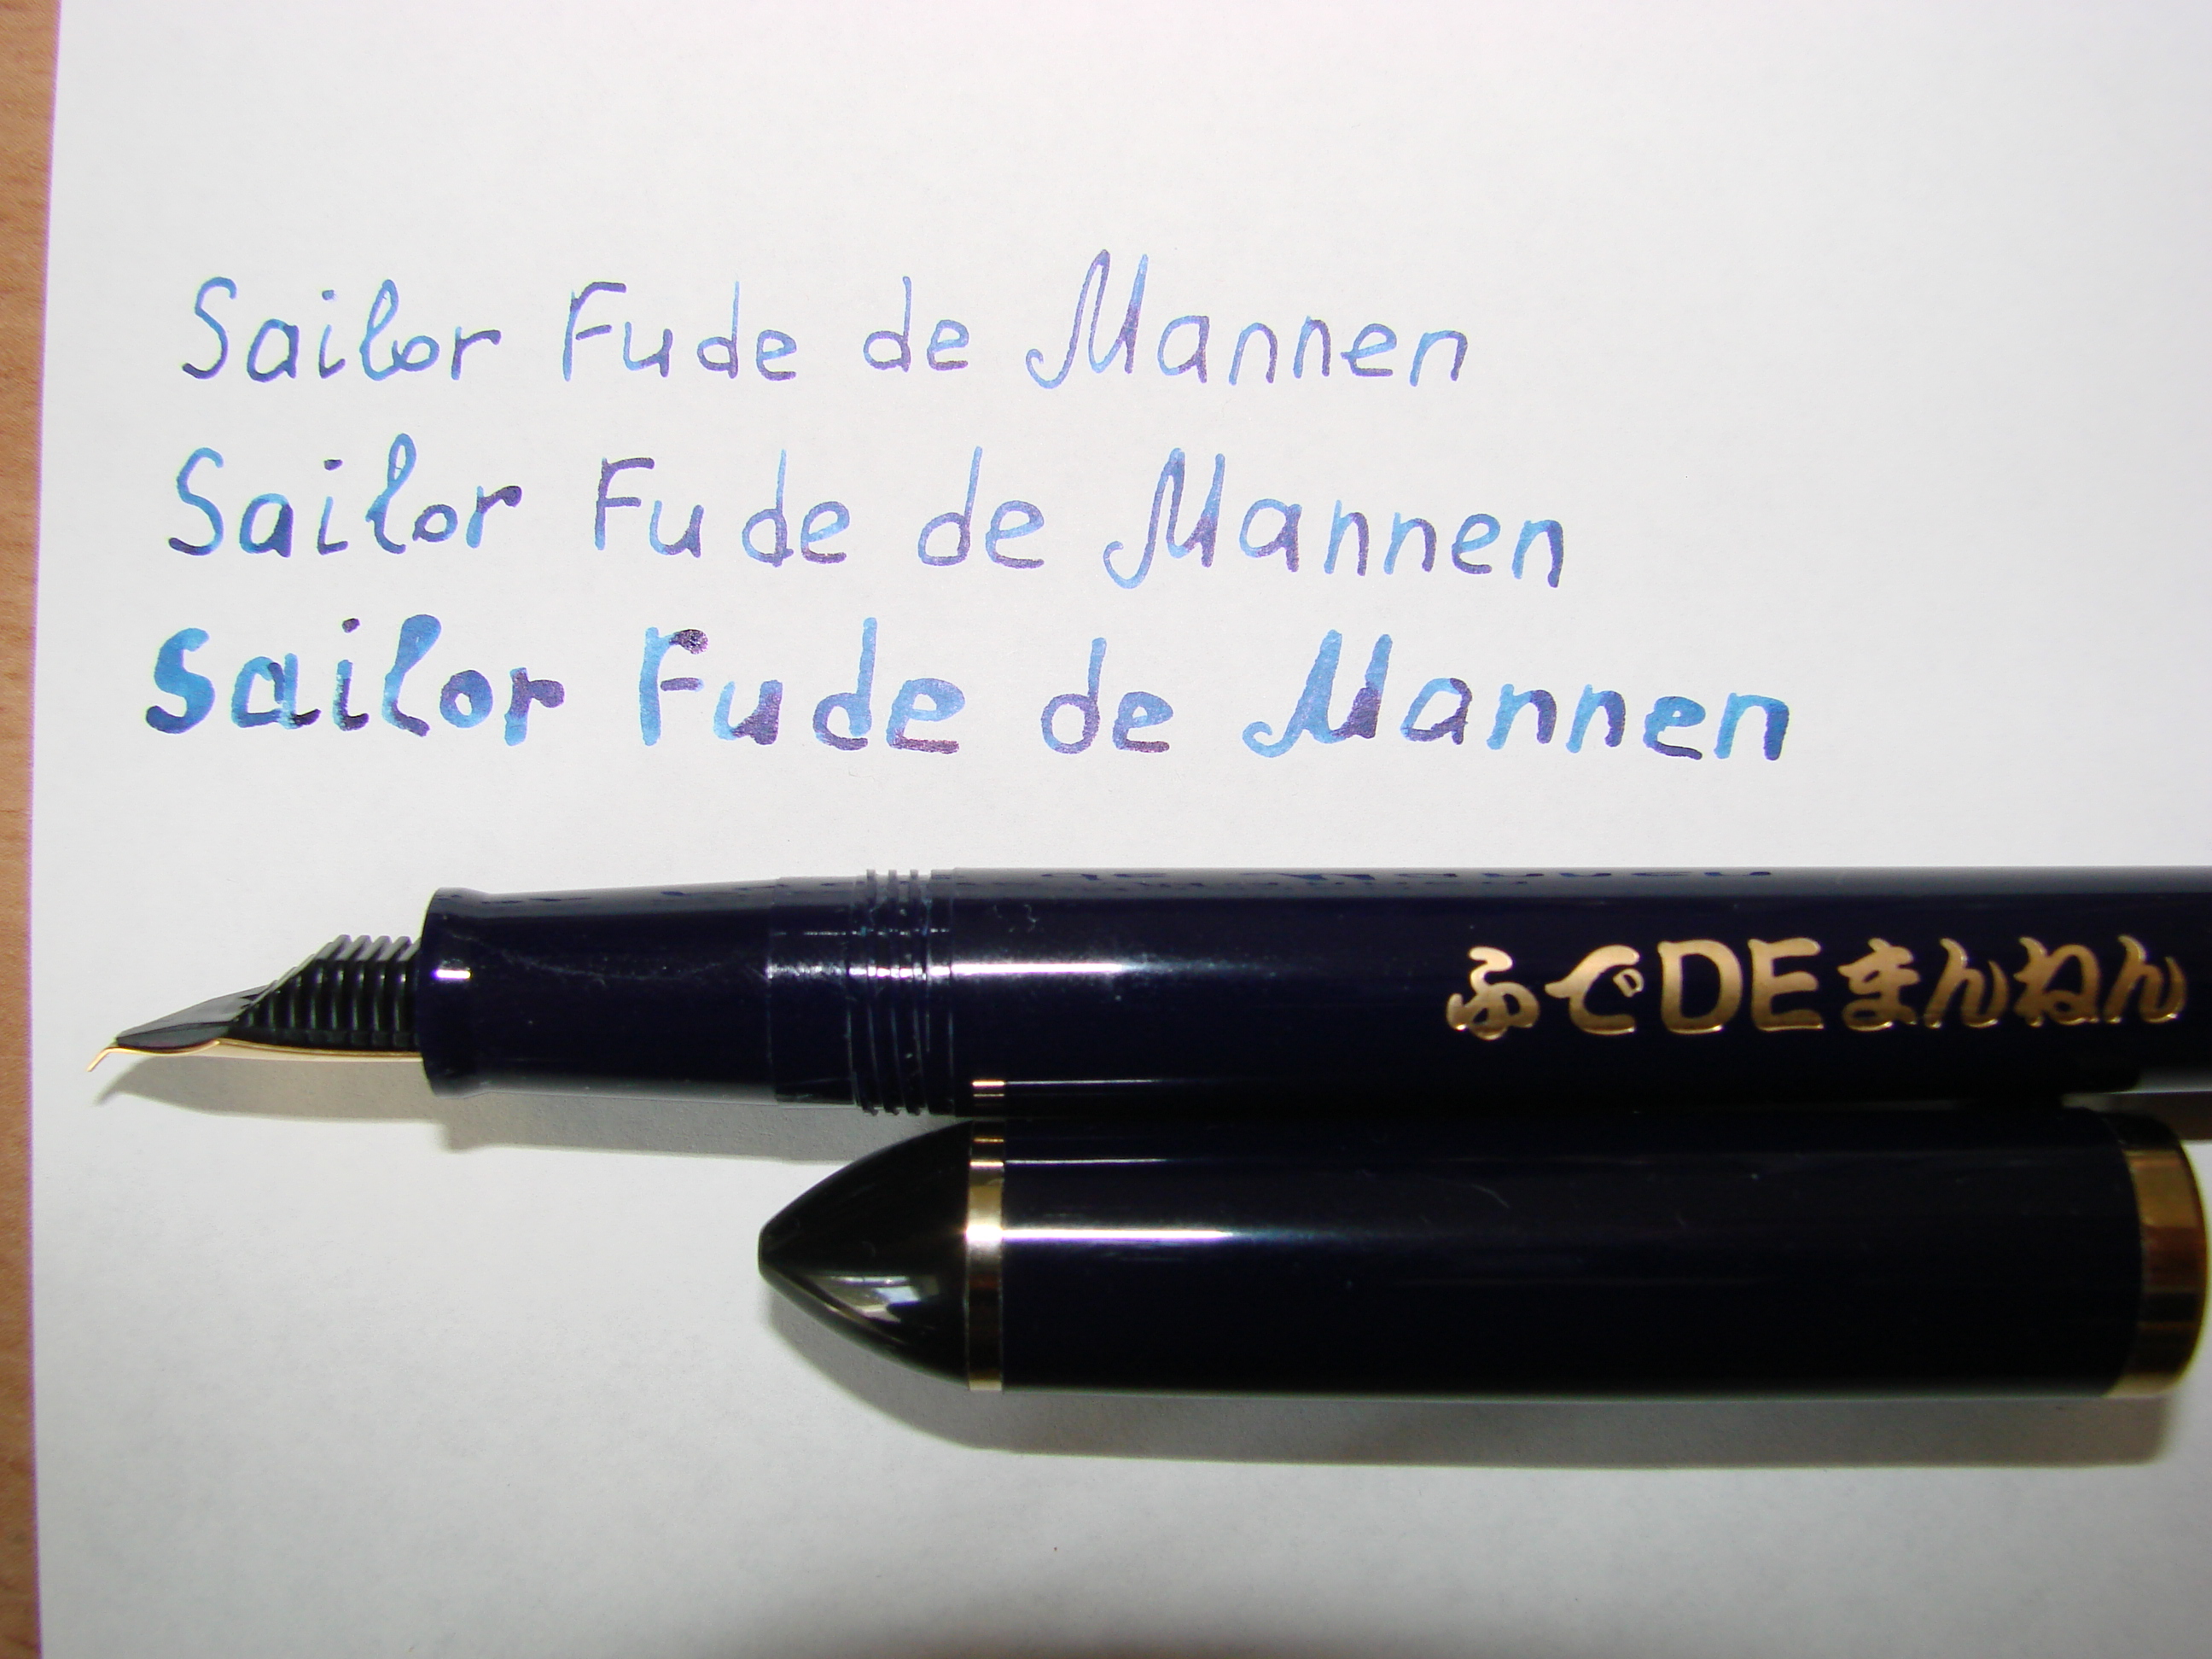 Sailor Fude de Mannen
Sailor Fude de Mannen
Sailor Fude de Mannen
ふでDEまんねん